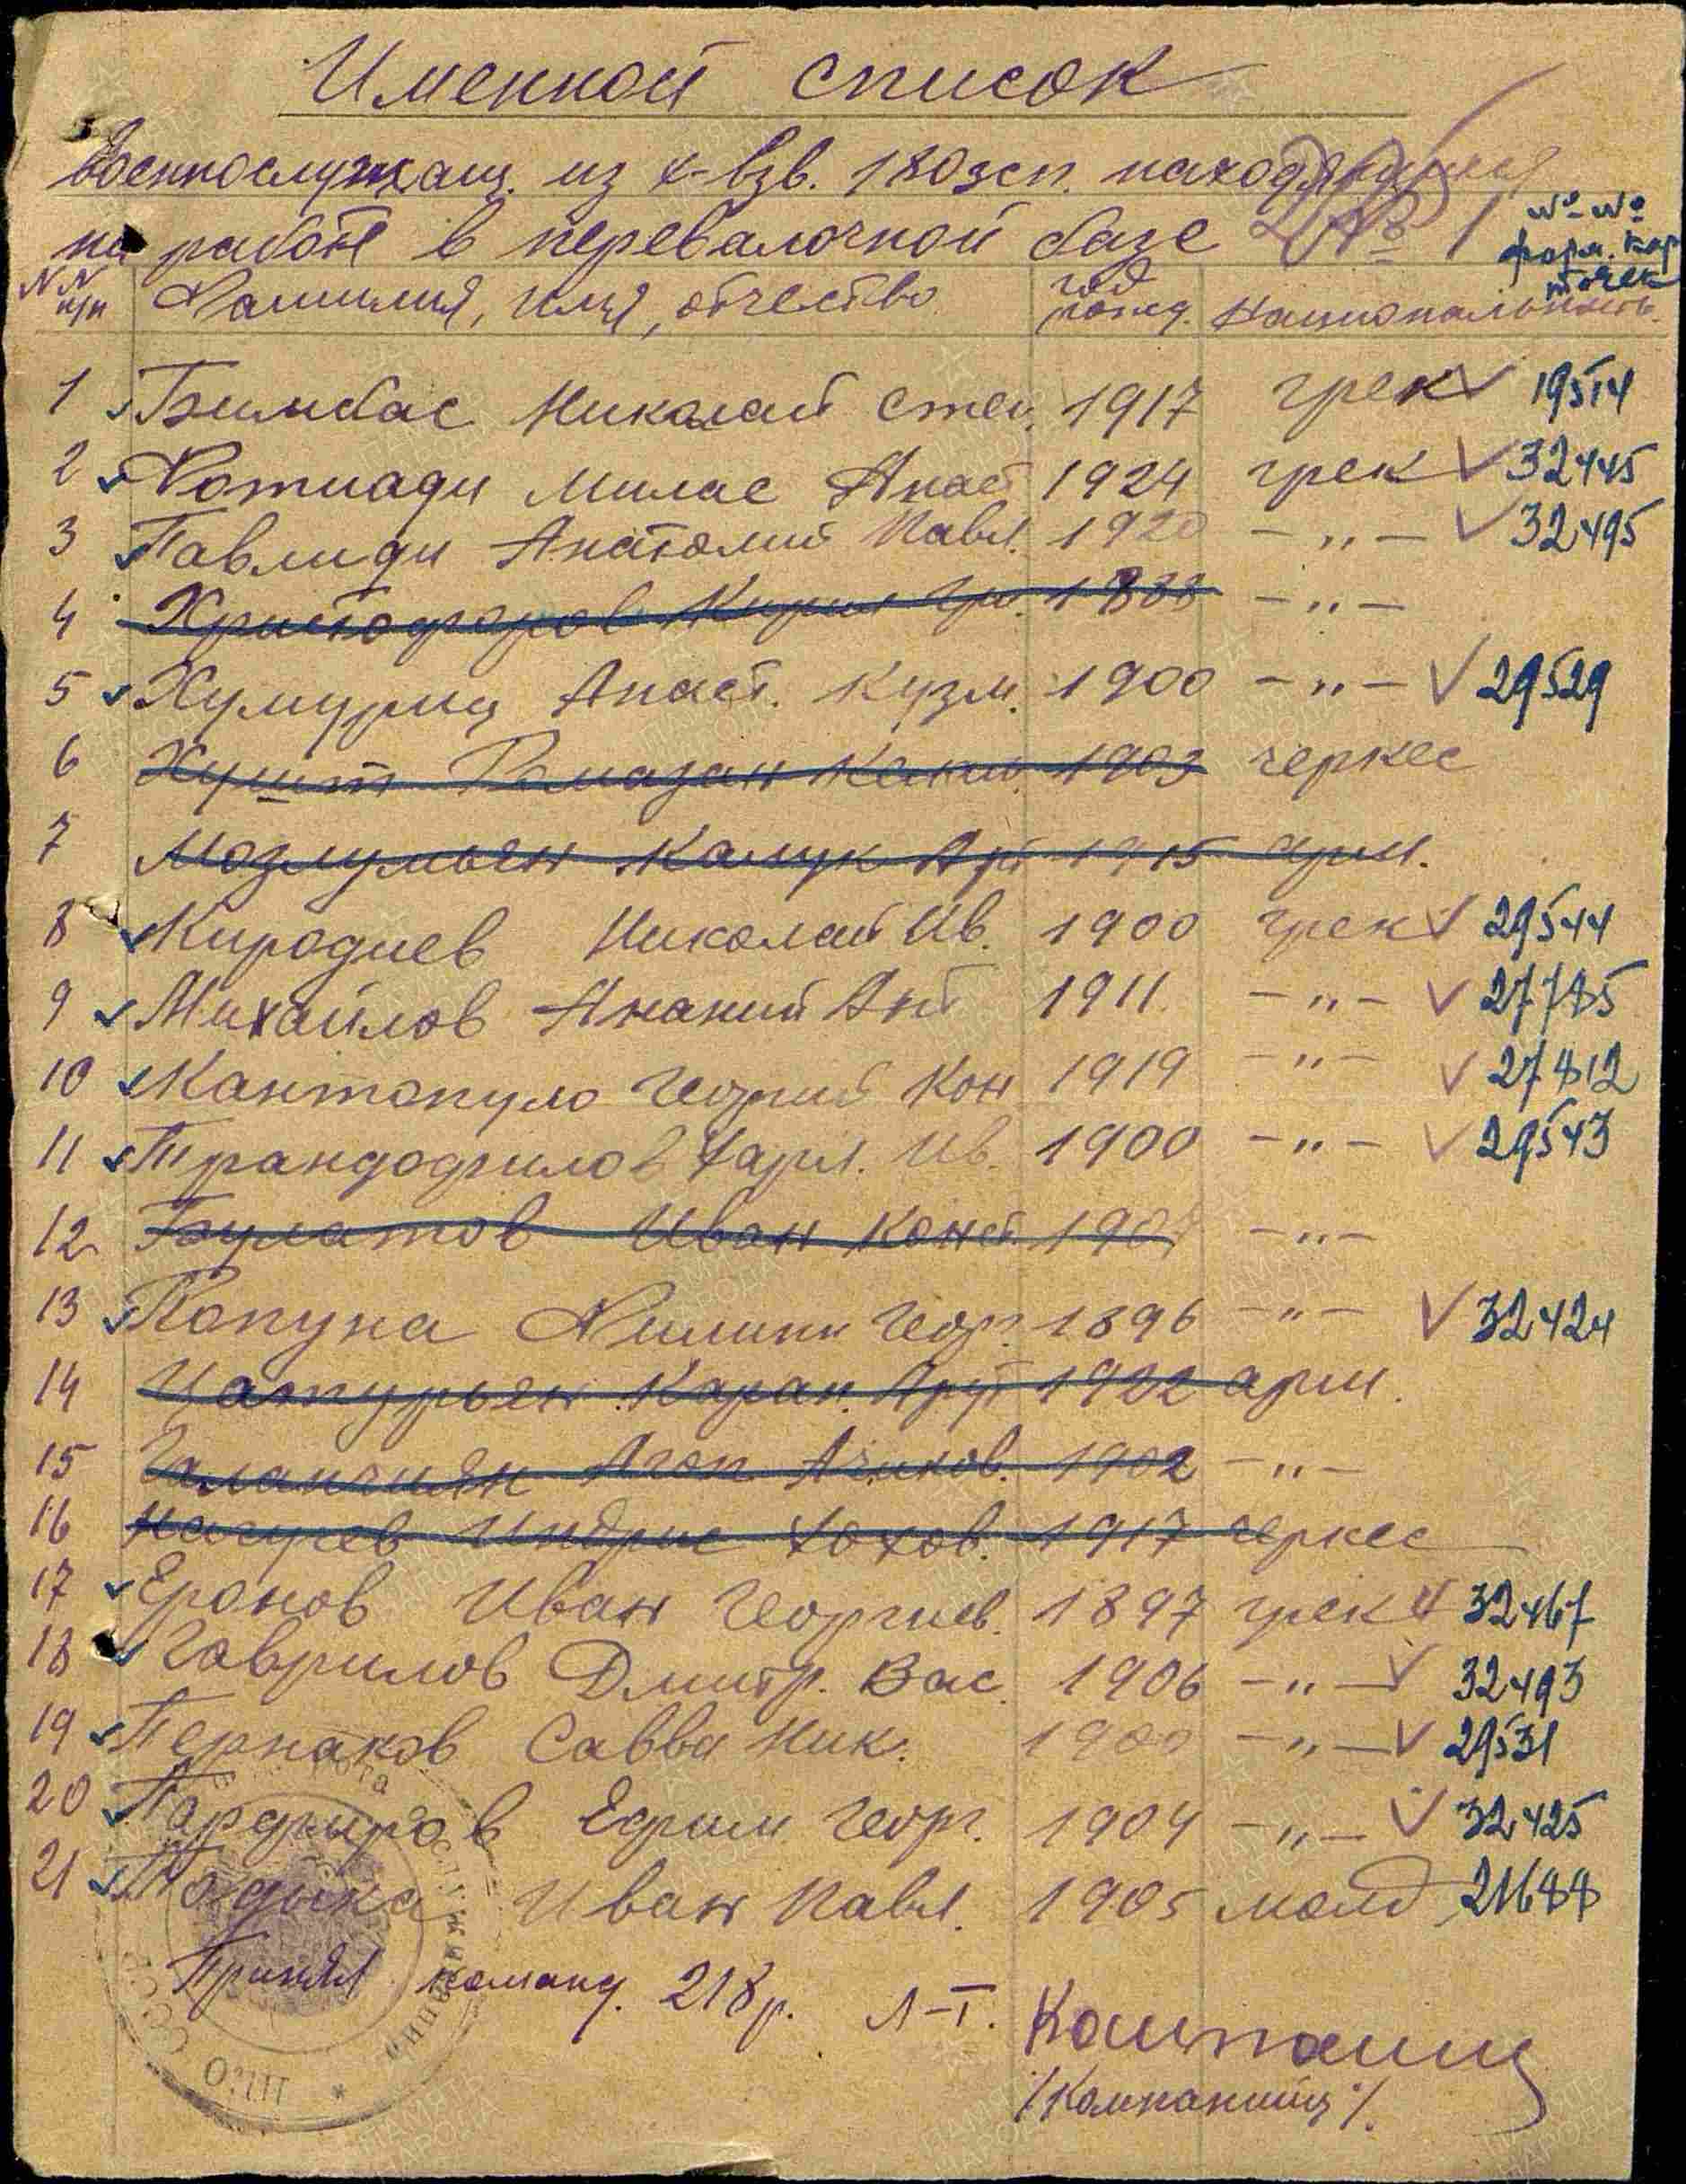 Именной список
военнослужащ. из х-взв. 180 зсп. находящихся
на работе в перевалочной базе № 1
№-№ форм. карточек
NN п/п Фамилия, имя, отчество год рожд. Национальность.
1 Бимбас Николай Степ. 1917 грек 19514
2 Фотиади Милас Анаст 1924 грек 32445
3 Павлиди Анатолий Павл. 1920 -"- 32495
4 Христофоров Кирил Гри. 1888 -"-
5 Хумуриц Анаст. Кузм. 1900 -"- 29529
6 Хушт Рамазан 1903 черкес
7 Мозлумьян Калук Арт 1915 арм.
8 Киродиев Николай Ив. 1900 грек 29544
9 Михайлов Ананий Ант 1911. -"- 27785
10 Кантопуло Георгий Кон 1919 -"- 27812
11 Трандофилов Харл. Ив. 1900 -"- 29543
12 Булатов Иван Конст. -"-
13 Капуна Филипп Геор. 1896 -"- 32424
14 Цатурьян Карап. Арут 1922 арм.
15 Агоп 1902 -"-
16 Нагучев Индрис Хохов. 1917 черкес
17 Еронов Иван Георгиев. 1897 грек 32467
18 Гаврилов Дмитр. Вас. 1906 -"- 32493
19 Пернаков Савва Ник. 1900 -"- 29531
20 Парфиров Ефим Георг. 1904 -"- 32425
21 Иван Павл. 1905 молд. 21688
Принял команд. 218 р. л-т. Компаниец
/Компаниец/.
НКО СССР